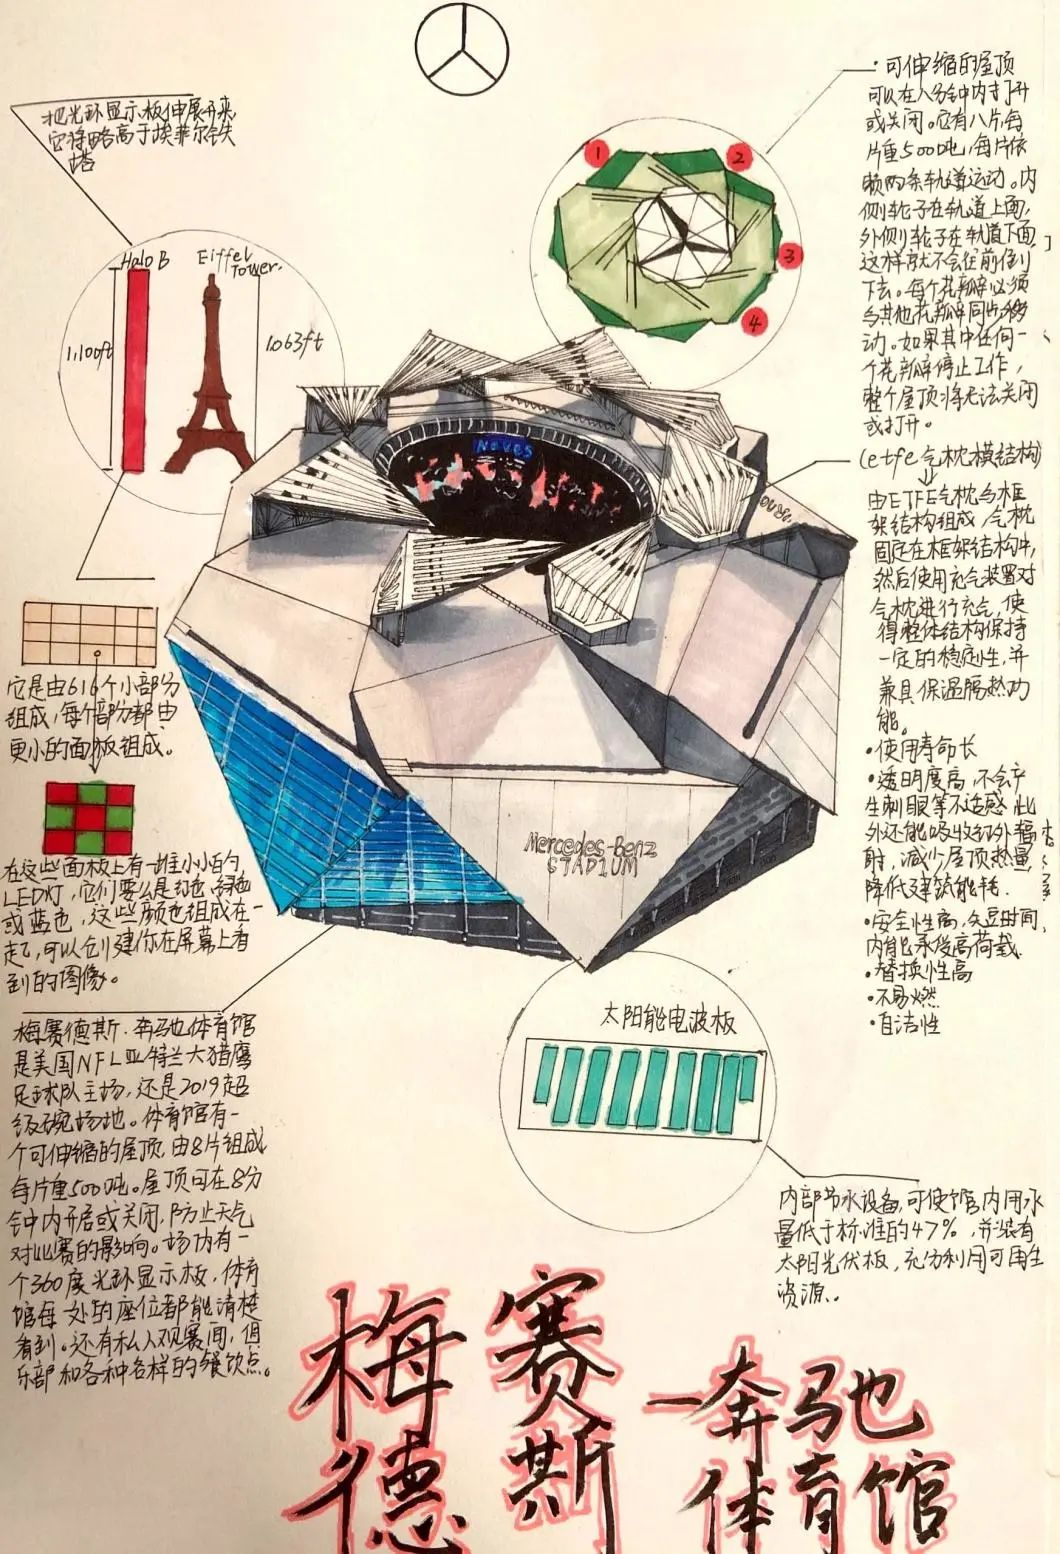 把光环显示板伸展开来,
它将略高于埃菲尔铁
塔
Halo B
Eiffel
Tower.
1,100ft
1.063ft
它是由616个小部分
组成,每个部分都由
更小的面板组成。
在这些面板上有一堆小小的
LED灯,它们要么是红色、绿色
或蓝色,这些颜色组成在一
起,可以创建你在屏幕上看
到的图像。
梅赛德斯·奔驰体育馆
是美国NFL亚特兰大猎鹰
足球队主场,还是2019超
级碗场地。体育馆有一
个可伸缩的屋顶,由8片组成
每片重500吨。屋顶可在8分
钟内开启或关闭,防止天气
对比赛的影响。场内有一
个360度光环显示板,体育
馆每一处的座位都能清楚
看到。还有私人观赛间,俱
乐部和各种各样的餐饮点。
1
2
3
4
·可伸缩的屋顶
可以在八分钟内打开
或关闭。它有八片,每
片重500吨,每片依
赖两条轨道运动。内
侧轮子在轨道上面,
外侧轮子在轨道下面,
这样就不会往前倒
下去。每个花瓣必须
与其他花瓣同步移
动。如果其中任何一
个花瓣停止工作,
整个屋顶将无法关闭
或打开。
(etfe气枕模结构)
由ETFE气枕与框
架结构组成,气枕
固定在框架结构中,
然后使用充气装置对
气枕进行充气,使
得整体结构保持
一定的稳定性,并
兼具保温隔热功
能。
·使用寿命长
·透明度高,不会产
生刺眼等不适感,此
外还能吸收红外辐
射,减少屋顶热量,
降低建筑能耗.
·安全性高,短时间
内能承受高荷载
·替换性高
·不易燃
·自洁性
Mercedes-Benz
STADIUM
太阳能电波板
内部节水设备,可使馆内用水
量低于标准的47%,并装有
太阳光伏板,充分利用可再生
资源..
梅赛
德斯
-奔驰
体育馆